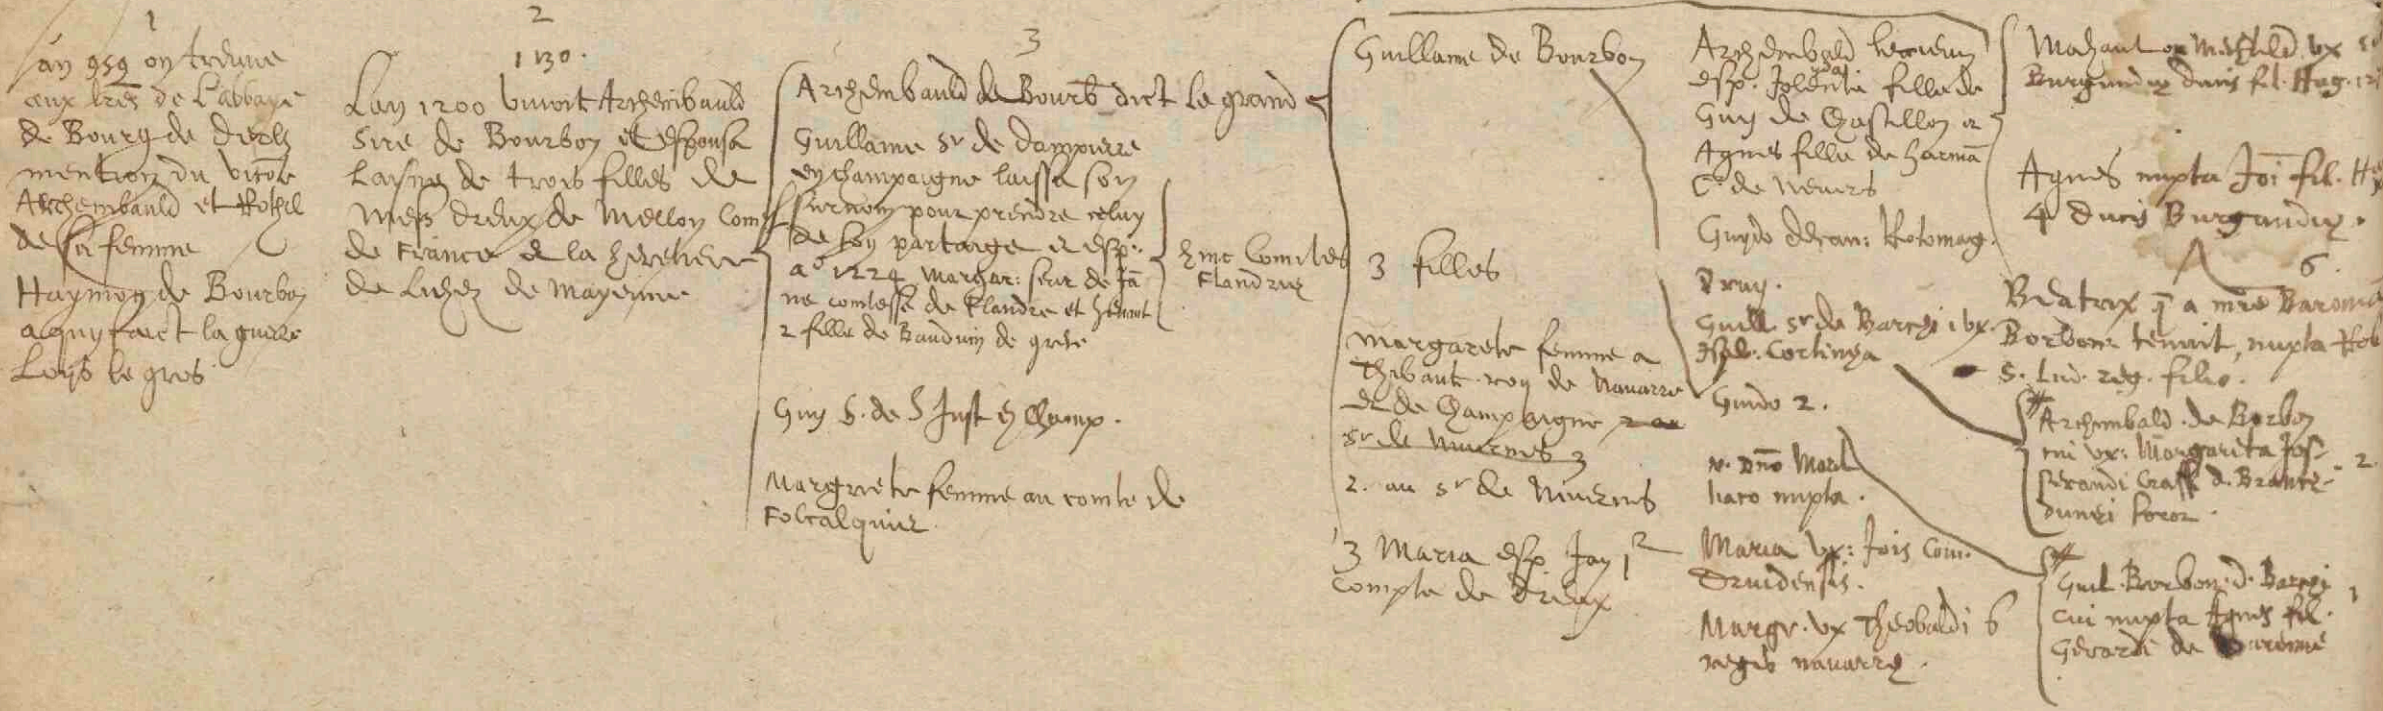 1
l'an 959 on treuve
aux lres de Labbaye
de Bourg de dieulx
mention du viconte
Archembauld et Rothil
de sa femme
Haymon de Bourbon
a quy faict la guerre
Loys le gros
2
1130.
Lan 1200 vivoit Archembauld
Sire de Bourbon et espousa
laisnee de trois filles de
Mess dreux de Mellon Comte
de France et la heretiere
de Luzez de Mayenne
3
Archembauld de Bourb dict le grand
Guillame Sr de dampierre
en champaigne laissa son
surnom pour prendre celuy
de son partaige et esp.
ao 1224 Margar: seur de Ja
ne comtesse de Flandre et henaut
2 fille de Bauduin de grece
Guy S. de S Just e Champ.
Margriete femme au comte de
Folcalquier
hinc Comites
Flandriæ
Guillame de Bourbon
3 filles
Margarete femme a
Thibaut roy de Navarre
et de Champaigne
Sr de Nivernes
2. au Sr de Nivernes
3 Maria esp Jan 1
compte de dreux
Archembald
esp. Jolenta fille de
Guy de Chastillon et
Agnes fille de harma
C. de Nevers
Guydo decan: Rotomag.
Druy.
Guill. Sr de Barcei vx
Isab. Cortinea
Guido 2.
N. Dno Marl
liaco nupta.
2
Maria vx: Jois Com.
Druidensis.
Margr. vx Theobaldi 6
regis navarre.
Mahaut ou Mechild. vx
Burgundiæ ducis fil. Hug.
Agnes nupta Joi fil. Hu
4 ducis Burgundiæ.
6.
Beatrix q a mre
Borbon tenuit, nupta Rob
S. Lud. reg. filio.
Archimbald. de Borbon
cui vx: Margarita Jos-
serandi Crass d. Branci-
duni soror.
2.
Guil. Borbon. d. Barcei
cui nupta Agnes fil.
Gerardi de
1